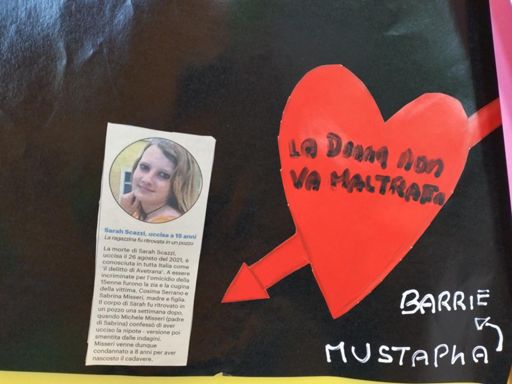 Sarah Scazzi, uccisa a 15 anni
La ragazzina fu ritrovata in un pozzo
La morte di Sarah Scazzi,
uccisa il 26 agosto del 2021, è
conosciuta in tutta Italia come
'il delitto di Avetrana'. A essere
incriminate per l'omicidio della
15enne furono la zia e la cugina
della vittima, Cosima Serrano e
Sabrina Misseri, madre e figlia.
Il corpo di Sarah fu ritrovato in
un pozzo una settimana dopo,
quando Michele Misseri (padre
di Sabrina) confessò di aver
ucciso la nipote - versione poi
smentita dalle indagini.
Misseri venne dunque
condannato a 8 anni per aver
nascosto il cadavere.
LA DONNA NON
VA MALTRATTA
BARRIE
MUSTAPHA